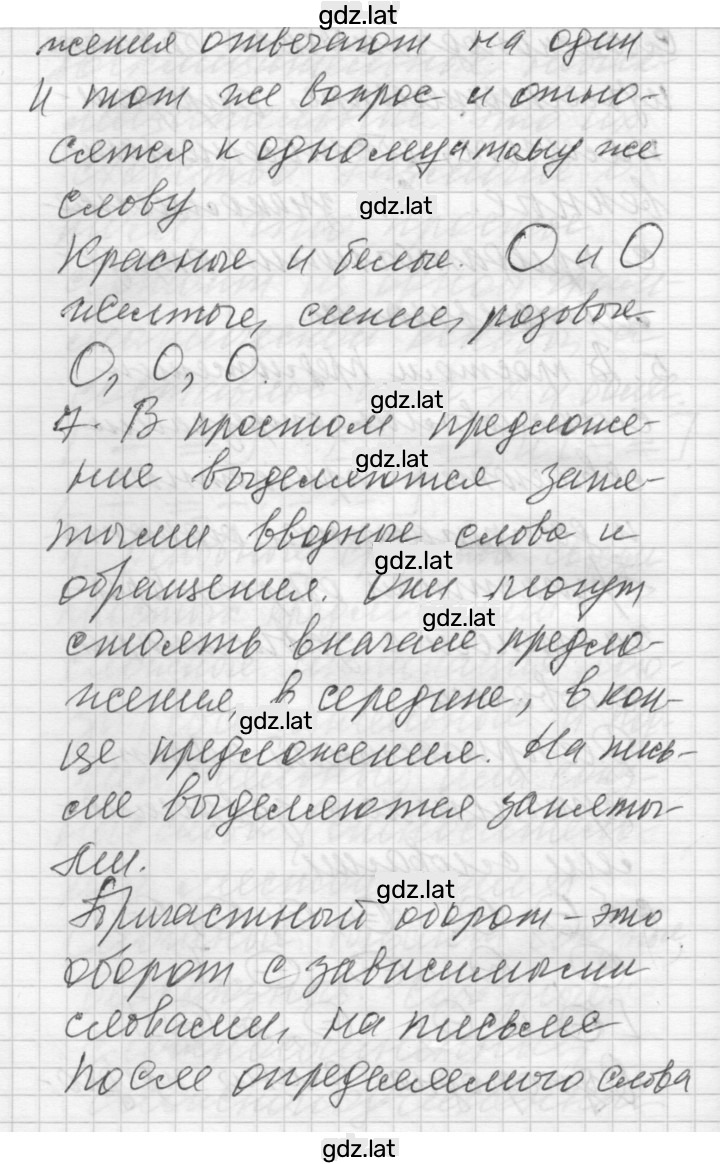 gdz.lat
жения отвечают на один
и тот же вопрос и отно-
сятся к одному и тому же
слову.
gdz.lat
Красные и белые. О и О
желтые, синие, розовые.
О, О, О.
gdz.lat
7. В простом предложе-
gdz.lat
ние выделяются запя-
тыми вводные слова и
gdz.lat
обращения. Они могут
gdz.lat
стоять вначале предло-
жения, в середине, в кон-
gdz.lat
це предложения. На пись-
ме выделяются запяты-
ми.
gdz.lat
Причастный оборот - это
оборот с зависимыми
словами, на письме
после определяемого слова
gdz.lat